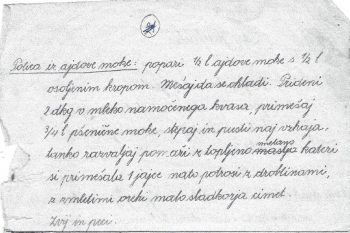 Potica iz ajdove moke: popari ½ l ajdove moke s ½ l
osoljenim kropom. Mešaj da se ohladi. Prideni
2 dkg v mleko namočenega kvasa, primešaj
¾ l pšenične moke, stepaj in pusti naj vzhaja,
tanko razvaljaj pomaži z topljeno smetano masla kateri
si primešala 1 jajce nato potrosi z drobtinami,
z zmletimi orehi malo sladkorja cimet.
Zvij in peci.